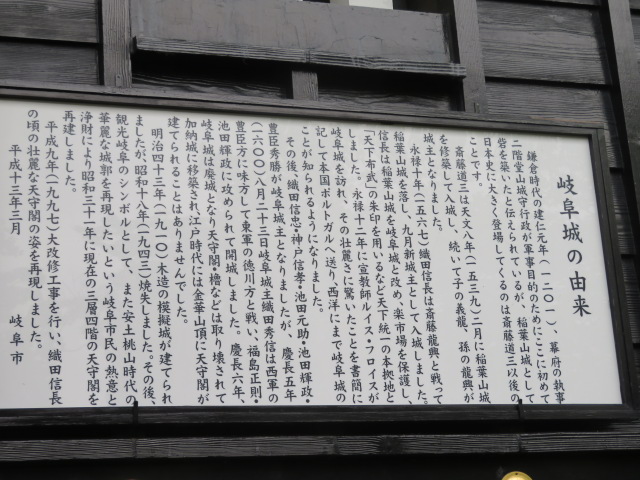 岐阜城の由来
鎌倉時代の建仁元年（一二〇一）、幕府の執事
二階堂山城守行政が軍事目的のためにここに初めて
砦を築いたと伝えられているが、稲葉山城として
日本史に大きく登場してくるのは斎藤道三以後の
ことです。
斎藤道三は天文八年（一五三九）二月に稲葉山城
を修築して入城し、続いて子の義龍、孫の龍興が
城主となりました。
永禄十年（一五六七）織田信長は斎藤龍興と戦って
稲葉山城を落し、九月新城主として入城しました。
信長は稲葉山城を岐阜城と改め、楽市場を保護し、
「天下布武」の朱印を用いるなど天下統一の本拠地と
しました。永禄十二年に宣教師ルイス・フロイスが
岐阜城を訪れ、その壮麗さに驚いたことを書簡に
記して本国ポルトガルへ送り、西洋にまで岐阜城の
ことが知られるようになりました。
その後、織田信忠・神戸信孝・池田元助・池田輝政・
豊臣秀勝が岐阜城主となりましたが、慶長五年
（一六〇〇）八月二十三日岐阜城主織田秀信は西軍の
豊臣方に味方して東軍の徳川方と戦い、福島正則・
池田輝政に攻められて開城しました。慶長六年、
岐阜城は廃城となり天守閣・櫓などは取り壊されて
加納城に移築され、江戸時代には金華山頂に天守閣が
建てられることはありませんでした。
明治四十三年（一九一〇）木造の模擬城が建てられ
ましたが、昭和十八年（一九四三）焼失しました。その後、
観光岐阜のシンボルとして、また安土桃山時代の
華麗な城郭を再現したいという岐阜市民の熱意と
浄財により、昭和三十一年に現在の三層四階の天守閣を
再建しました。
平成九年（一九九七）大改修工事を行い、織田信長
の頃の壮麗な天守閣の姿を再現しました。
平成十三年三月 岐阜市